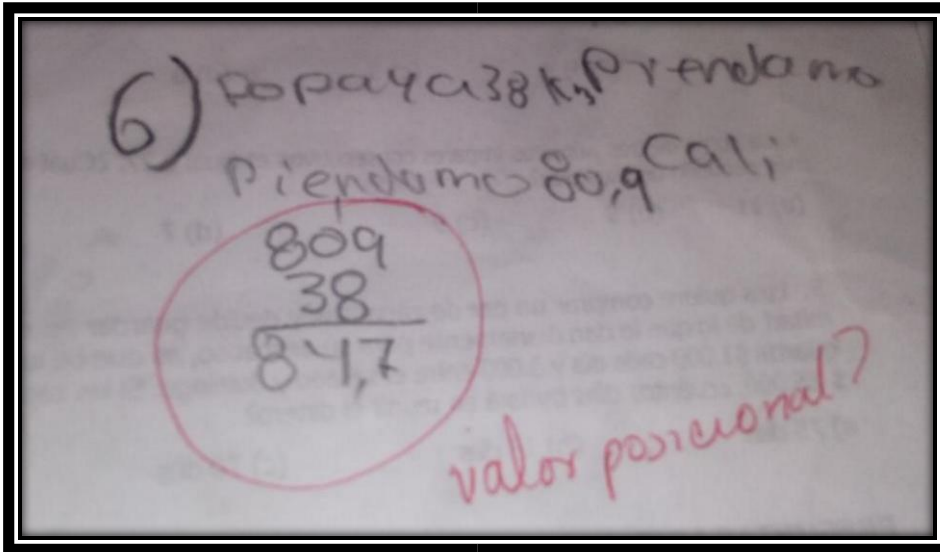 6) Popaya a 38 km Prendamo
Piendamo 80,9 Cali
809
38
84,7
valor posicional?